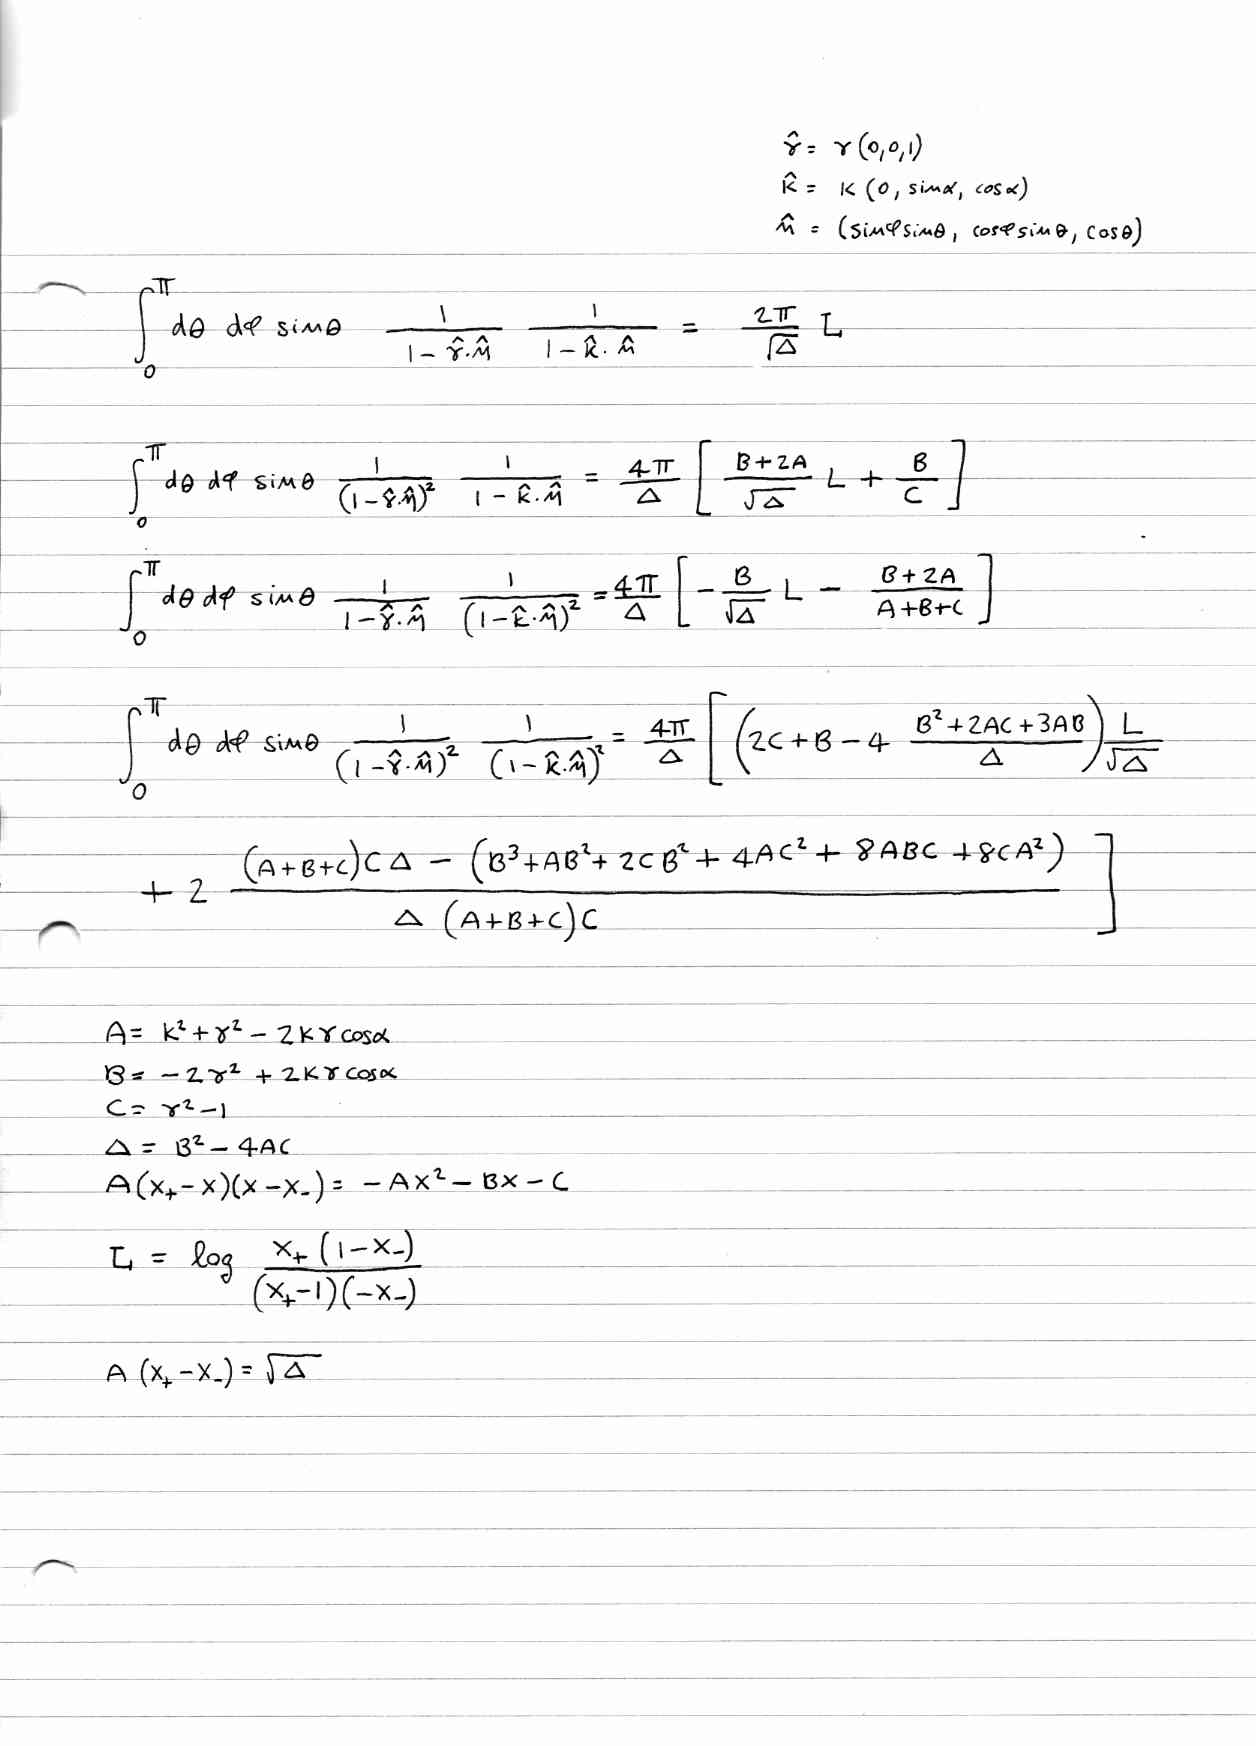 r̂ = r(0,0,1)
k̂ = k(0, sinα, cosα)
n̂ = (sinφsinθ, cosφsinθ, cosθ)
∫₀^π dθ dφ sinθ 1/(1-r̂.n̂) 1/(1-k̂.n̂) = 2π/√Δ L
∫₀^π dθ dφ sinθ 1/(1-r̂.n̂)² 1/(1-k̂.n̂) = 4π/Δ [ (B+2A)/√Δ L + B/C ]
∫₀^π dθ dφ sinθ 1/(1-r̂.n̂) 1/(1-k̂.n̂)² = 4π/Δ [ - B/√Δ L - (B+2A)/(A+B+C) ]
∫₀^π dθ dφ sinθ 1/(1-r̂.n̂)² 1/(1-k̂.n̂)² = 4π/Δ [ (2C+B-4 (B²+2AC+3AB)/Δ) L/√Δ
+ 2 ((A+B+C)CΔ - (B³+AB²+2CB²+4AC²+8ABC+8CA²))/(Δ(A+B+C)C) ]
A = k²+r²-2krcosα
B = -2r²+2krcosα
C = r²-1
Δ = B²-4AC
A(x₊-x)(x-x₋) = -Ax²-Bx-C
L = log (x₊(1-x₋))/((x₊-1)(-x₋))
A(x₊-x₋) = √Δ